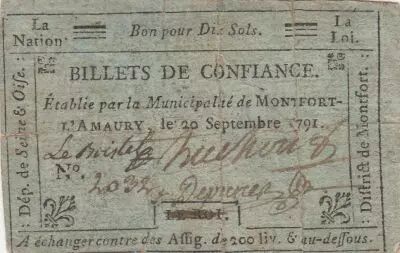 La Nation
Bon pour Dix Sols.
La Loi.
BILLETS DE CONFIANCE.
Établie par la Municipalité de MONTFORT-
L'AMAURY, le 20 Septembre 1791.
N.o 2032
LE ROI.
A échanger contre des Assig. de 200 liv. & au-dessous.
Dép. de Seine & Oise.
District de Montfort.